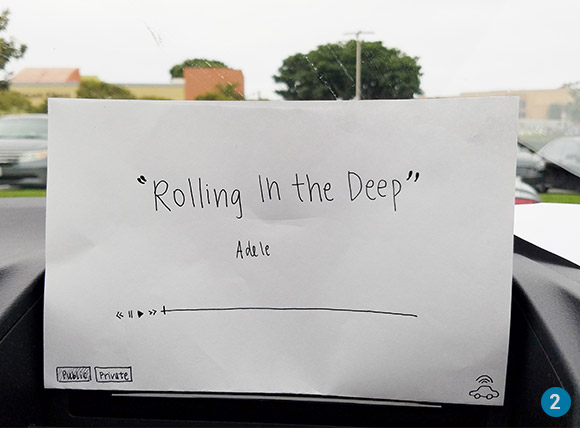 “Rolling In the Deep”
Adele
Public Private
2